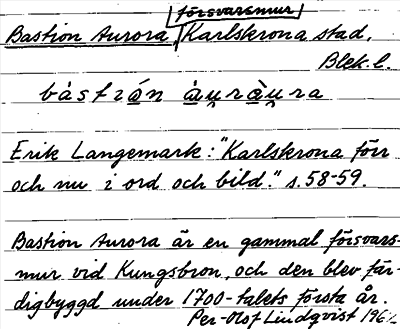 försvarsmur
Bastion Aurora, Karlskrona stad.
Blek. l.
Erik Langemark: "Karlskrona förr
och nu i ord och bild." s. 58-59.
Bastion Aurora är en gammal försvars-
mur vid Kungsbron, och den blev fär-
digbyggd under 1700-talets första år.
Per-Olof Lindqvist